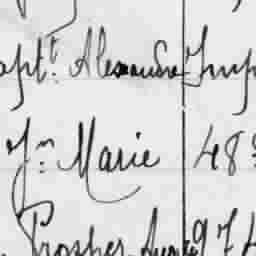 apt. Alexandre Imp
Jn Marie 48
Prosper 974